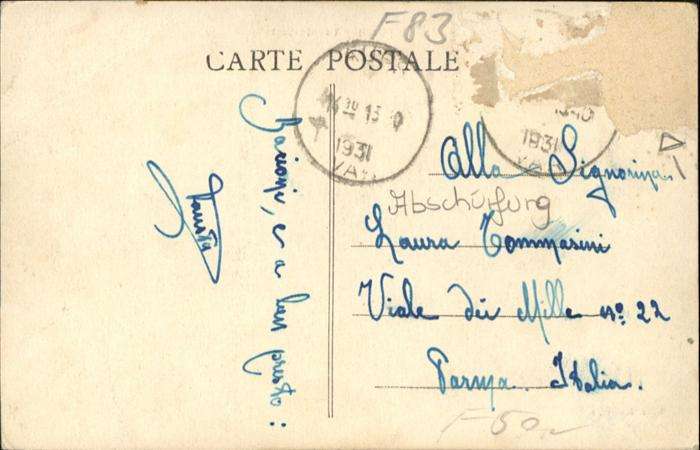 F83
CARTE POSTALE
1630 15
1931
1931
Bacioni, e a ben presto:
Alla Signorina
Abschürfung
Laura Tommasini
Viale dei Mille nº 22
Parma. Italia.
F50